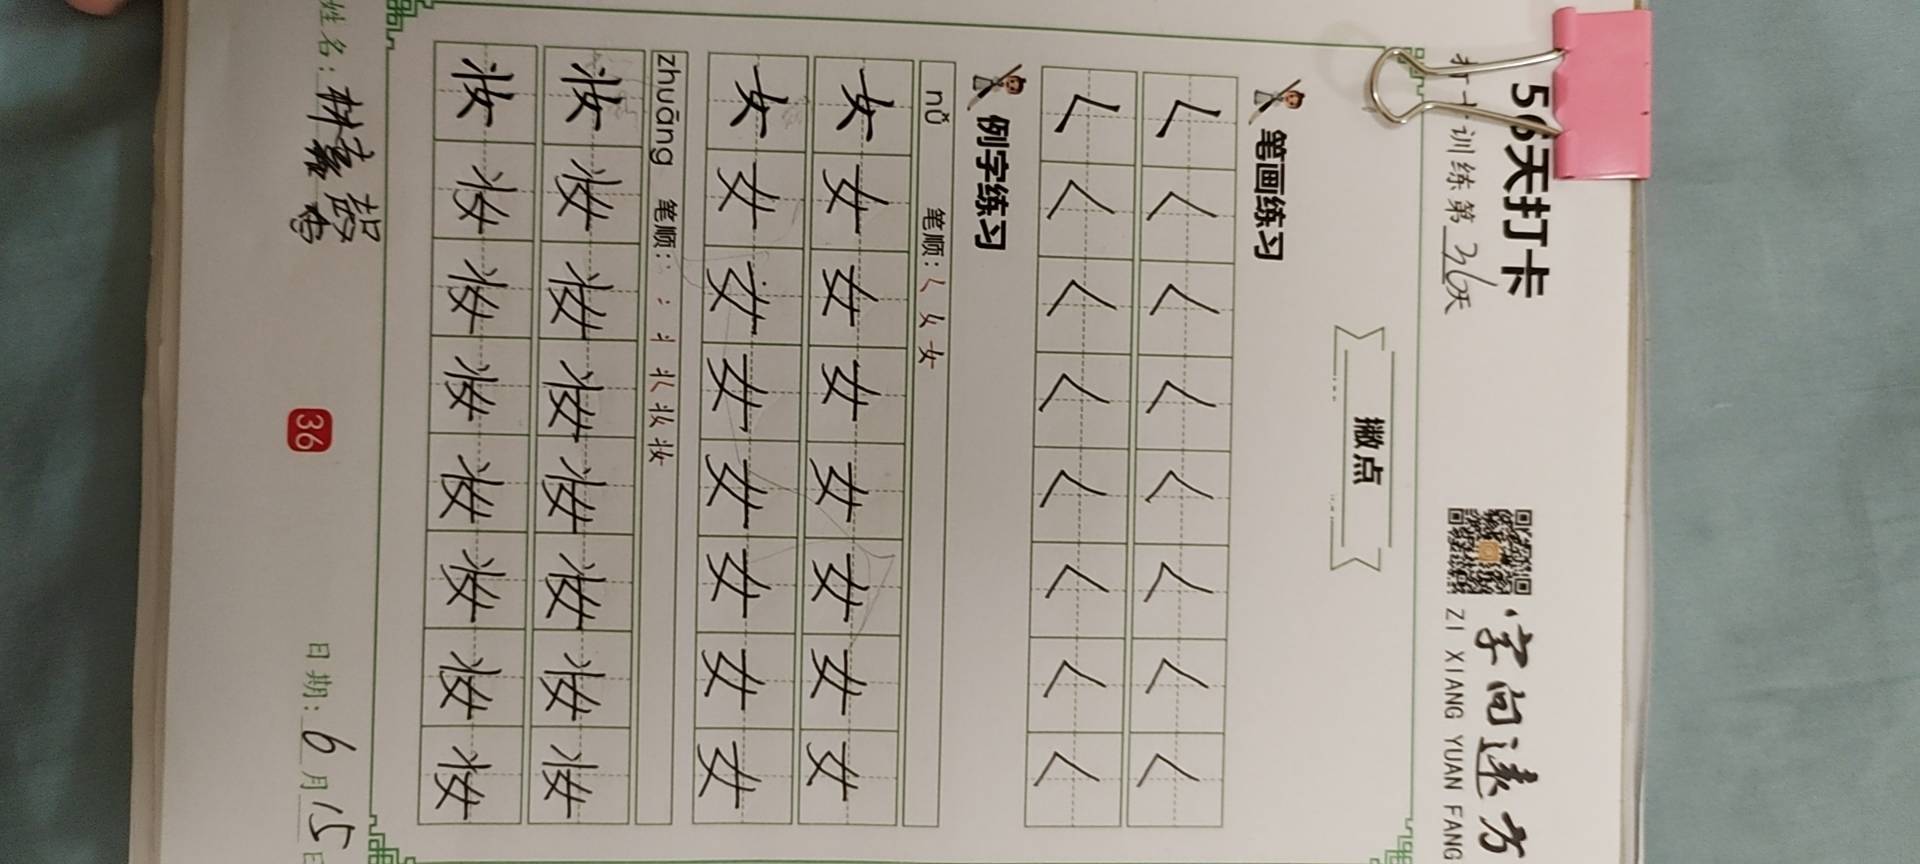 56天打卡
字向远方
ZI XIANG YUAN FANG
训练第36天
撇点
笔画练习
𡿨𡿨𡿨𡿨𡿨𡿨𡿨𡿨
𡿨𡿨𡿨𡿨𡿨𡿨𡿨𡿨
例字练习
nǚ 笔顺：𡿨 女 女
女女女女女女女女
女女女女女女女女
zhuāng 笔顺：丶 冫 丬 妆 妆 妆
妆妆妆妆妆妆妆妆
妆妆妆妆妆妆妆妆
姓名：林
36
日期：6月15日